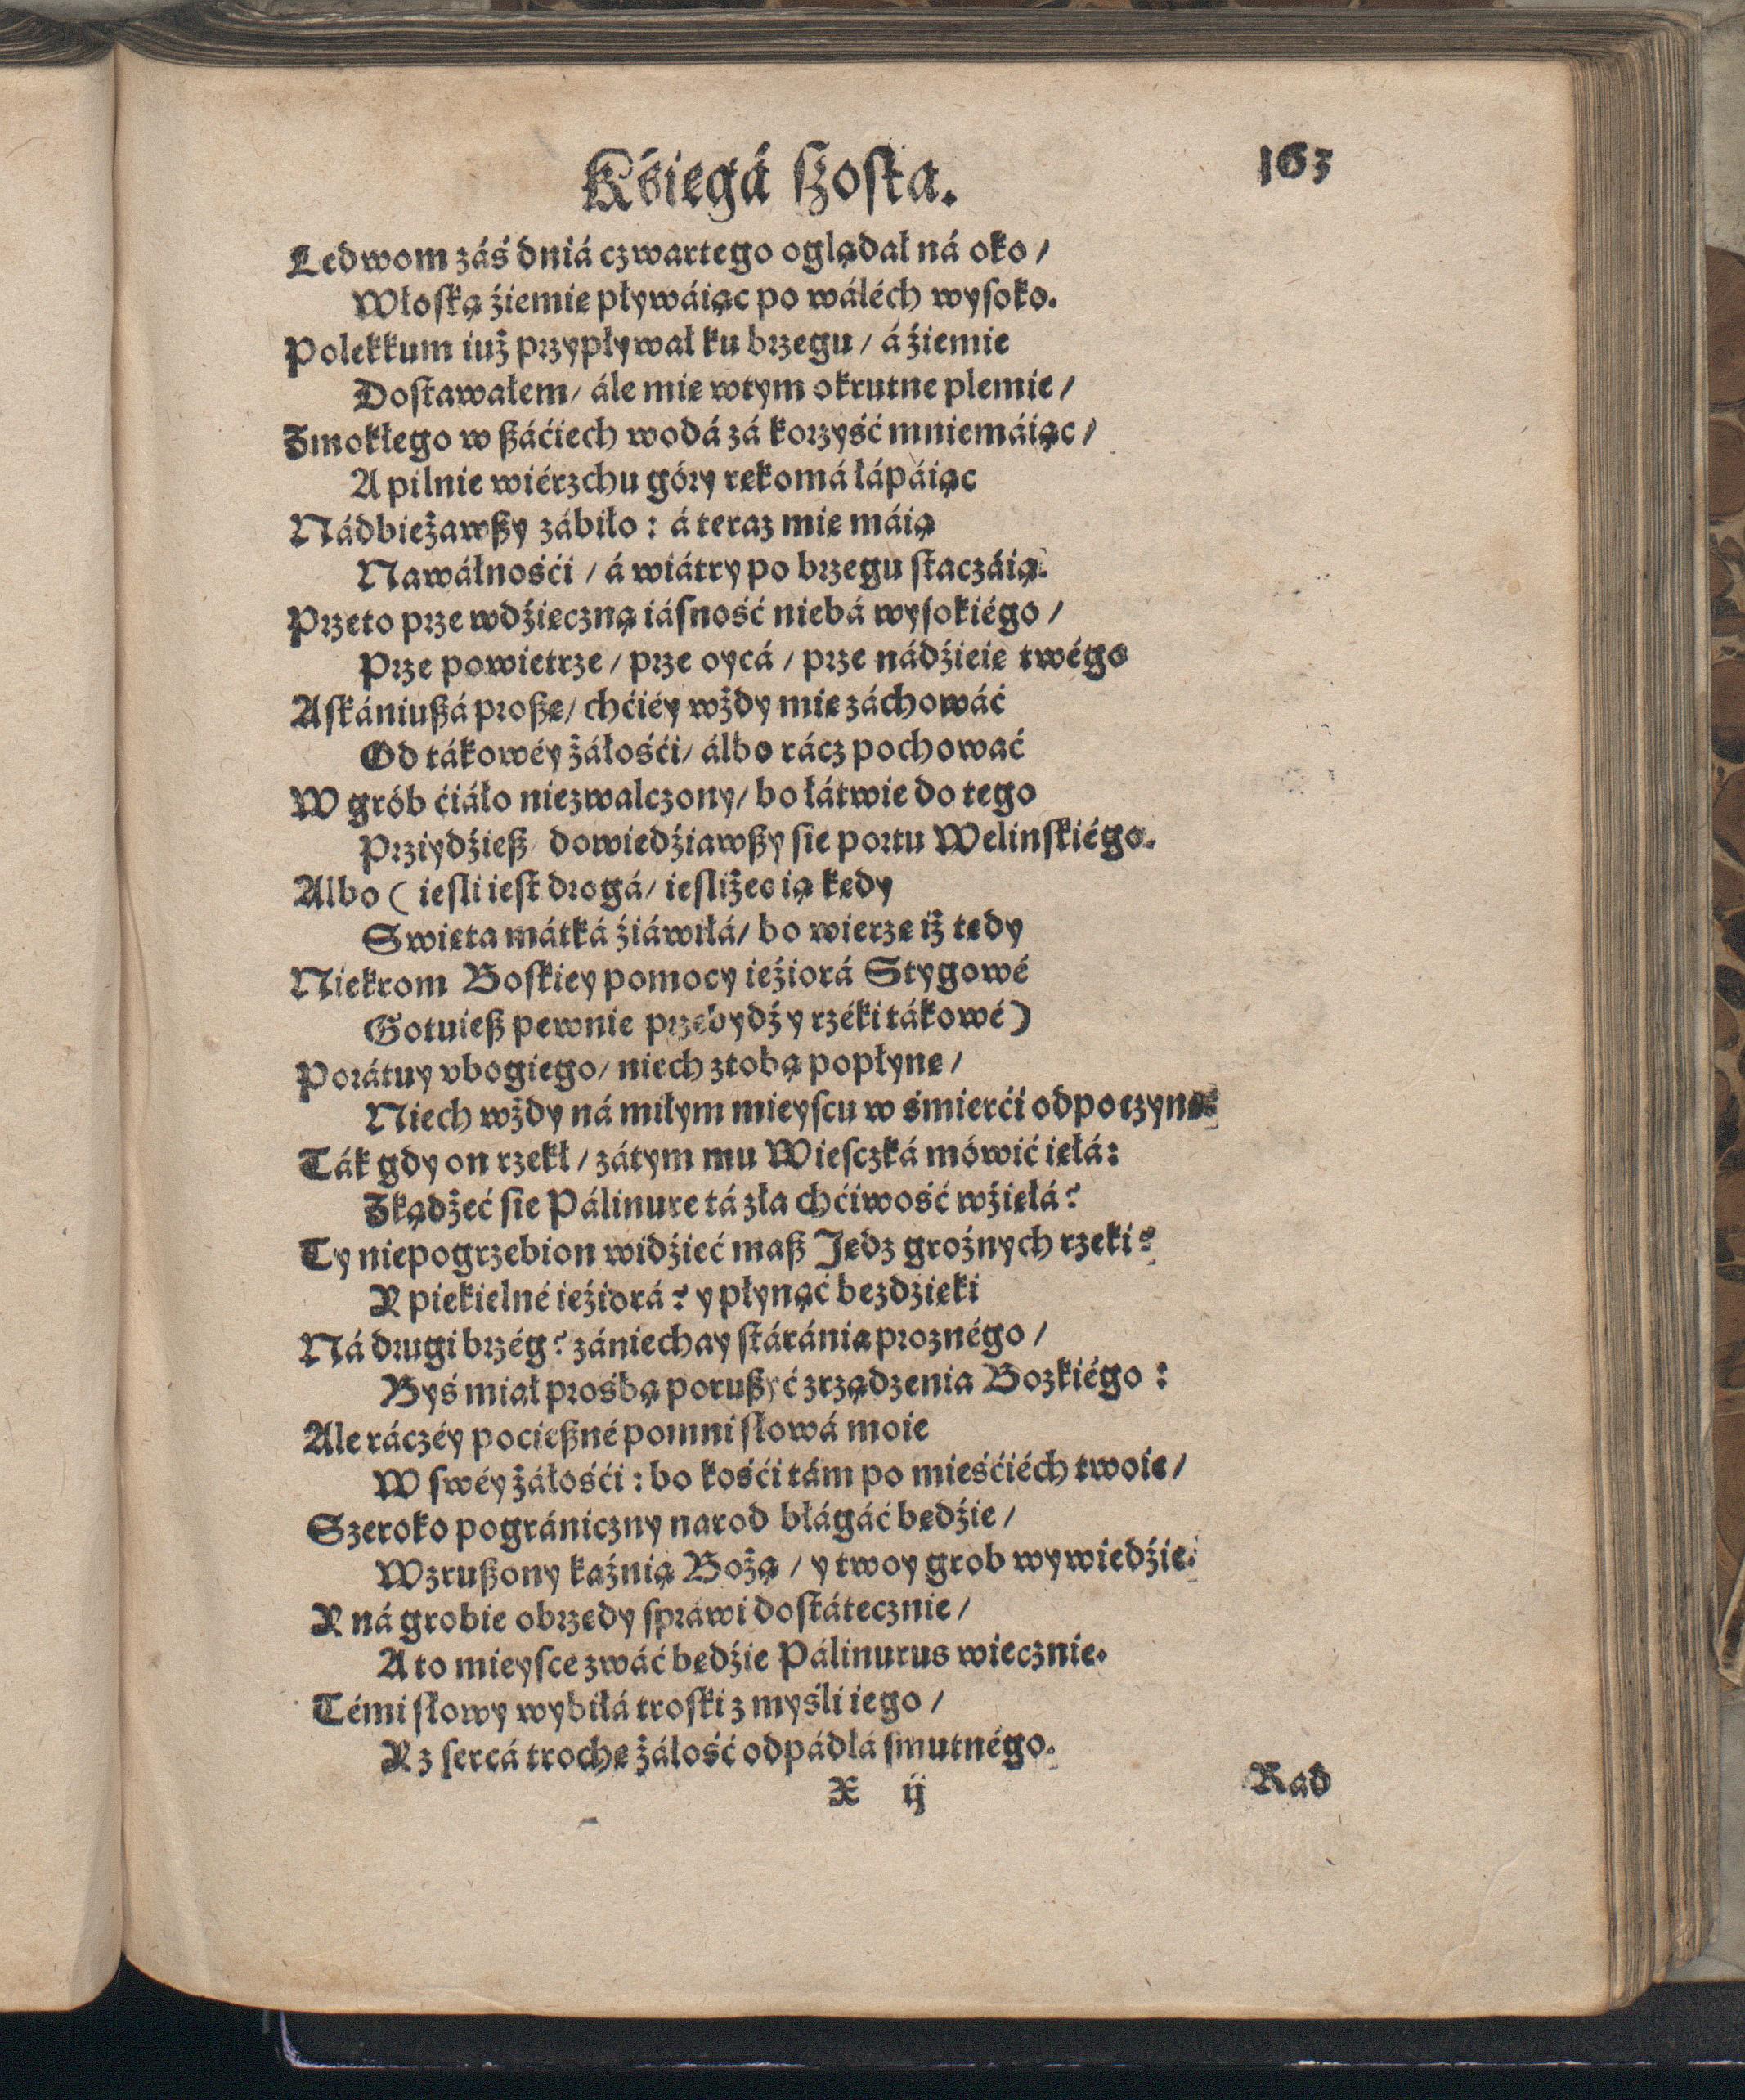 Kśięgá ſzoſta. 163
Ledwom záś dniá czwartego oglądał ná oko /
Włoſką źiemię pływáiąc po wáléch wyſoko.
Polekkum iuż przypływał ku brzegu / á źiemie
Doſtawałem / ále mię wtym okrutne plemię /
Zmokłego w ßáćiech wodá zá korzyść mniemáiąc /
A pilnie wiérzchu góry rękomá łápáiąc
Nádbieżawßy zábiło: á teraz mię máią
Nawáłnośći / á wiátry po brzegu ſtaczáią.
Przeto prze wdźięczną iáſność niebá wyſokiégo /
Prze powietrze / prze oycá / prze nádźieię twégo
Aſkániußá proßę / chćiéy wżdy mię záchowáć
Od tákowéy żáłośći / álbo rácz pochować
W grób ćiáło niezwalczony / bo łátwie do tego
Prziydźieß / dowiedźiawßy ſię portu Welinſkiégo.
Albo ( ieſli ieſt drogá / ieſliżeć ią kędy
Swięta mátká źiáwiłá / bo wierzę iż tędy
Niekrom Boſkiey pomocy ieźiorá Stygowé
Gotuieß pewnie przebydź y rzéki tákowé )
Porátuy vbogiego / niech ztobą popłynę /
Niech wżdy ná miłym mieyſcu w śmierći odpoczynę.
Ták gdy on rzekł / zátym mu Wieſczká mówić ięłá:
Zkądżeć ſię Pálinure tá zła chćiwość wźięłá?
Ty niepogrzebion widźieć maß Jędz groźnych rzeki?
Y piekielné ieźiorá? y płynąć bezdzięki
Ná drugi brzég? zániechay ſtáránia proznégo /
Byś miał prośbą porußyć zrządzenia Bozkiégo:
Ale ráczéy pocießné pomni ſłowá moie
W ſwéy żáłośći: bo kośći tám po mieśćiéch twoie /
Szeroko pográniczny narod błágáć będźie /
Wzrußony kaźnią Bożą / y twoy grob wywiedźie.
Y ná grobie obrzędy ſpráwi doſtátecznie /
A to mieyſce zwáć będźie Pálinurus wiecznie.
Témi ſłowy wybiłá troſki z myśli iego /
Y z ſercá trochę żáłość odpádłá ſmutnégo.
X ij Rad